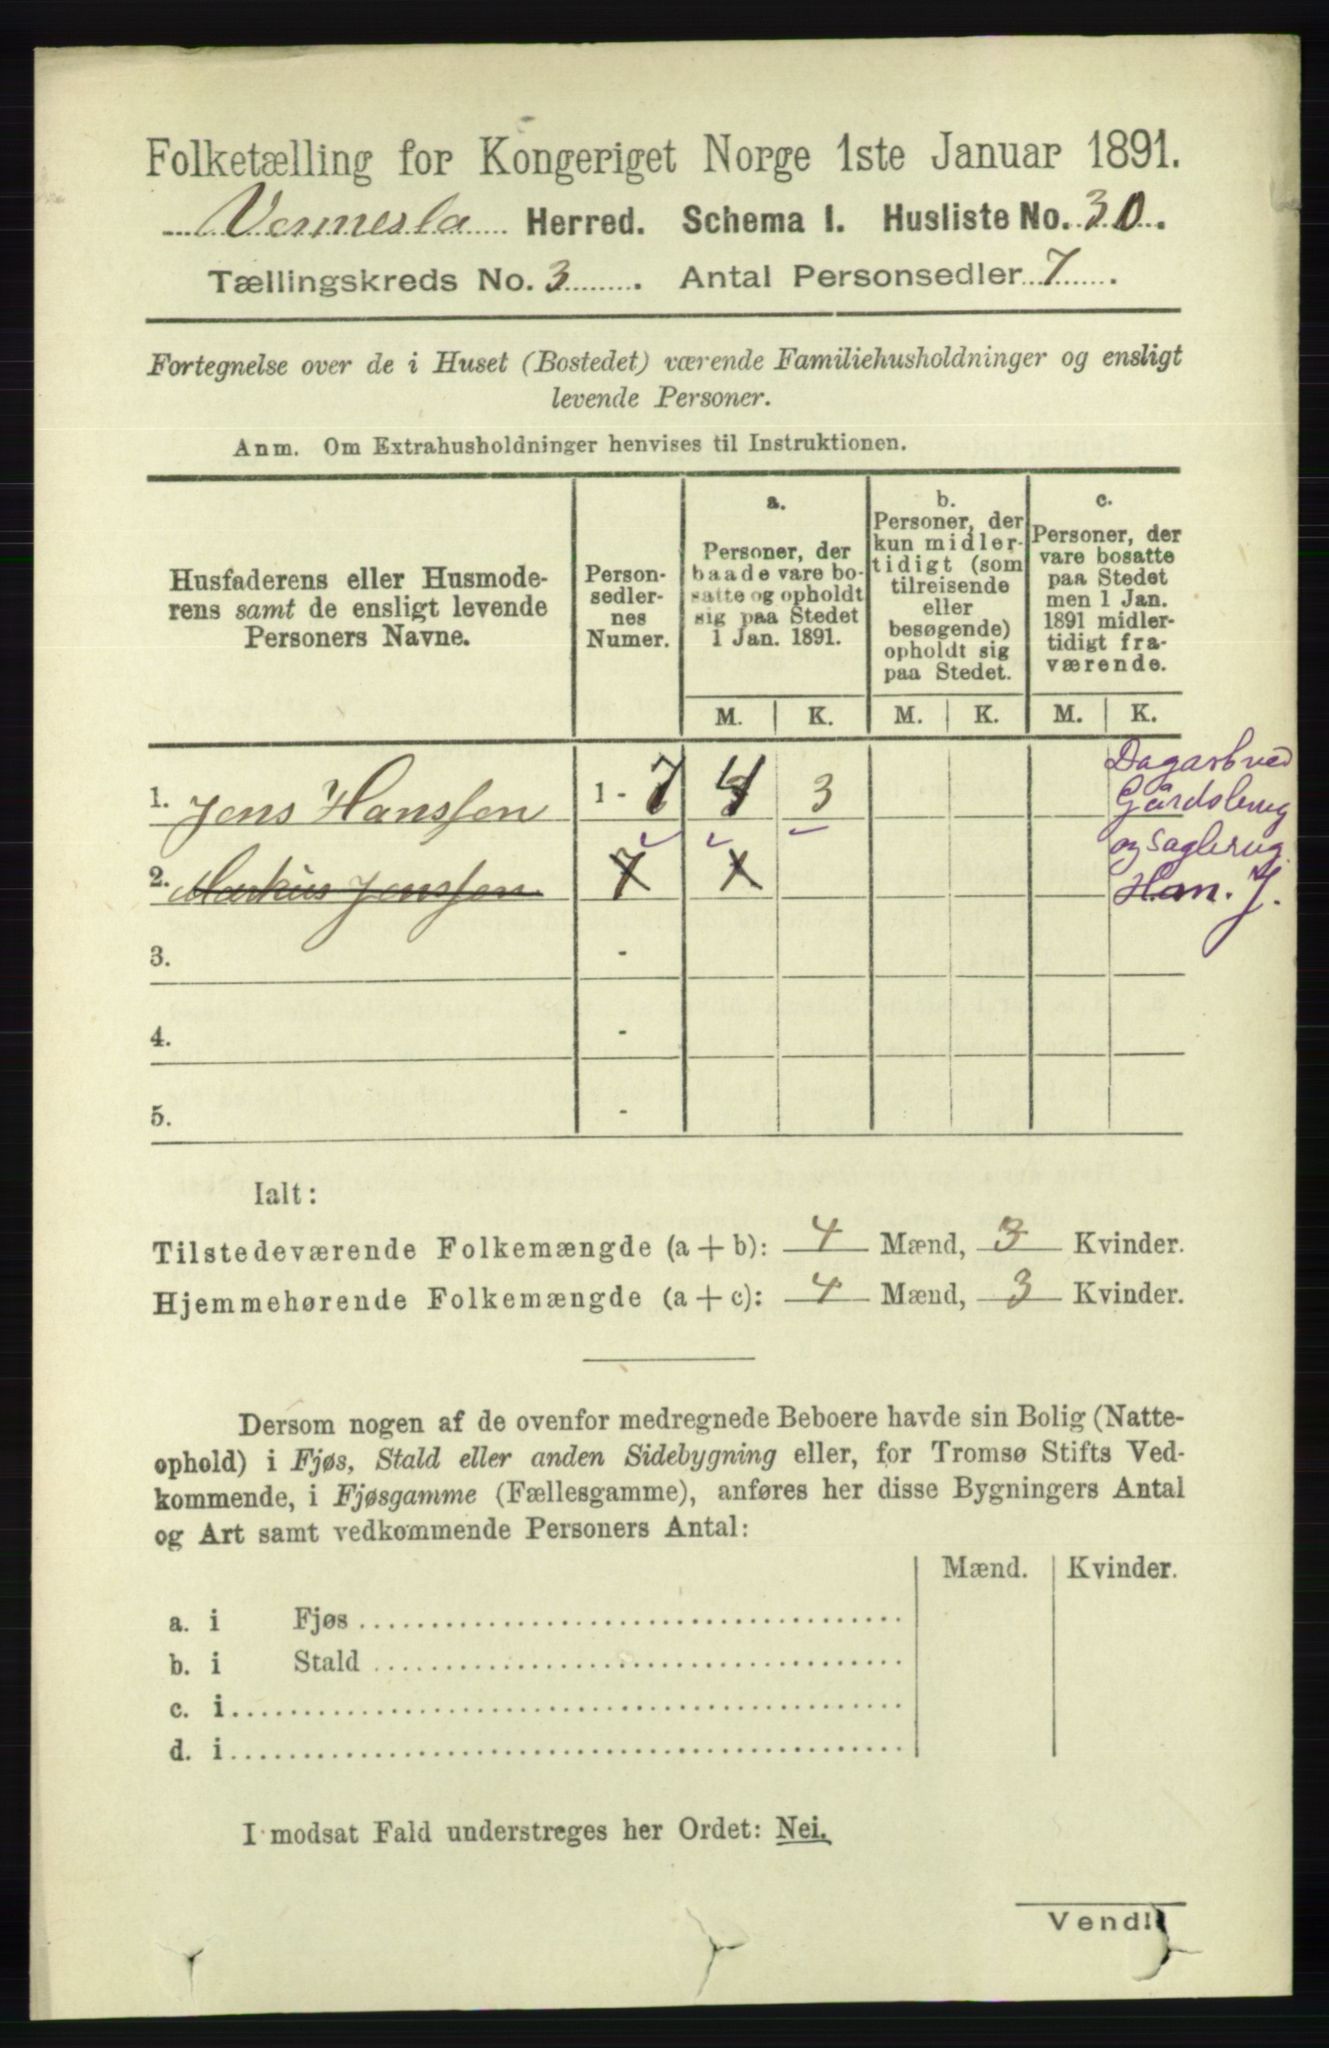 Folketælling for Kongeriget Norge 1ste Januar 1891.
Vennesla Herred. Schema I. Husliste No. 30.
Tællingskreds No. 3. Antal Personsedler 7.
Fortegnelse over de i Huset (Bostedet) værende Familiehusholdninger og ensligt
levende Personer.
Anm. Om Extrahusholdninger henvises til Instruktionen.
Husfaderens eller Husmode-
rens samt de ensligt levende
Personers Navne.
Person-
sedler-
nes
Numer.
a.
Personer, der
baade vare bo-
satte og opholdt
sig paa Stedet
1 Jan. 1891.
b.
Personer, der
kun midler-
tidigt (som
tilreisende
eller
besøgende)
opholdt sig
paa Stedet.
c.
Personer, der
vare bosatte
paa Stedet
men 1 Jan.
1891 midler-
tidigt fra-
værende.
M. K. M. K. M. K.
1. Jens Hanssen 1 - 7 4 3
Dagarb ved
Gårdsbrug
og Sagbrug.
2. Markus Jenssen 7 1
3. -
4. -
5. -
Ialt:
Tilstedeværende Folkemængde (a + b): 4 Mænd, 3 Kvinder.
Hjemmehørende Folkemængde (a + c): 4 Mænd, 3 Kvinder.
Dersom nogen af de ovenfor medregnede Beboere havde sin Bolig (Natte-
ophold) i Fjøs, Stald eller anden Sidebygning eller, for Tromsø Stifts Ved-
kommende, i Fjøsgamme (Fællesgamme), anføres her disse Bygningers Antal
og Art samt vedkommende Personers Antal:
Mænd. Kvinder.
a. i Fjøs
b. i Stald
c. i
d. i
I modsat Fald understreges her Ordet: Nei.
Vend!